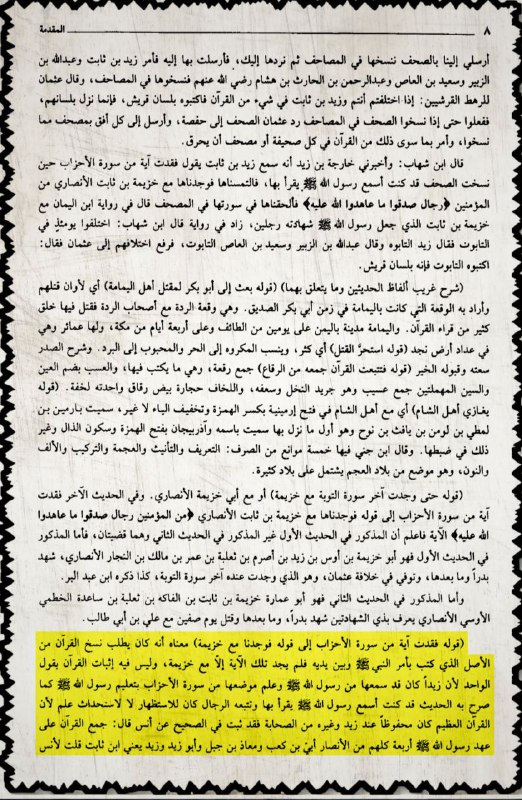 ٨ المقدمة
أرسلي إلينا بالصحف ننسخها في المصاحف ثم نردها إليك، فأرسلت بها إليه فأمر زيد بن ثابت وعبدالله بن
الزبير وسعيد بن العاص وعبدالرحمن بن الحارث بن هشام رضي الله عنهم فنسخوها في المصاحف، وقال عثمان
للرهط القرشيين: إذا اختلفتم أنتم وزيد بن ثابت في شيء من القرآن فاكتبوه بلسان قريش، فإنما نزل بلسانهم،
ففعلوا حتى إذا نسخوا الصحف في المصاحف رد عثمان الصحف إلى حفصة، وأرسل إلى كل أفق بمصحف مما
نسخوا، وأمر بما سوى ذلك من القرآن في كل صحيفة أو مصحف أن يحرق.
قال ابن شهاب: وأخبرني خارجة بن زيد أنه سمع زيد بن ثابت يقول فقدت آية من سورة الأحزاب حين
نسخت الصحف قد كنت أسمع رسول الله ﷺ يقرأ بها، فالتمسناها فوجدناها مع خزيمة بن ثابت الأنصاري من
المؤمنين ﴿رجال صدقوا ما عاهدوا الله عليه﴾ فألحقناها في سورتها في المصحف قال في رواية ابن اليمان مع
خزيمة بن ثابت الذي جعل رسول الله ﷺ شهادته رجلين، زاد في رواية قال ابن شهاب: اختلفوا يومئذٍ في
التابوت فقال زيد التابوه وقال عبدالله بن الزبير وسعيد بن العاص التابوت، فرفع اختلافهم إلى عثمان فقال:
اكتبوه التابوت فإنه بلسان قريش.
(شرح غريب ألفاظ الحديثين وما يتعلق بهما) (قوله بعث إلى أبو بكر لمقتل أهل اليمامة) أي لأوان قتلهم
وأراد به الوقعة التي كانت باليمامة في زمن أبي بكر الصديق. وهي وقعة الردة مع أصحاب الردة فقتل فيها خلق
كثير من قراء القرآن. واليمامة مدينة باليمن على يومين من الطائف وعلى أربعة أيام من مكة، ولها عمائر وهي
في عداد أرض نجد (قوله استحرَّ القتل) أي كثر، وينسب المكروه إلى الحر والمحبوب إلى البرد. وشرح الصدر
سعته وقبوله الخير (قوله فتتبعت القرآن جمعه من الرقاع) جمع رقعة، وهي ما يكتب فيها، والعسب بضم العين
والسين المهملتين جمع عسيب وهو جريد النخل وسعفه، واللخاف حجارة بيض رقاق واحدته لخفة. (قوله
يغازي أهل الشام) أي مع أهل الشام في فتح إرمينية بكسر الهمزة وتخفيف الياء لا غير، سميت بارمين بن
لمطي بن لومن بن يافث بن نوح وهو أول ما نزل بها سميت باسمه وأذربيجان بفتح الهمزة وسكون الذال وغير
ذلك في ضبطها. وقال ابن جني فيها خمسة موانع من الصرف: التعريف والتأنيث والعجمة والتركيب والألف
والنون، وهو موضع من بلاد العجم يشتمل على بلاد كثيرة.
(قوله حتى وجدت آخر سورة التوبة مع خزيمة) أو مع أبي خزيمة الأنصاري. وفي الحديث الآخر فقدت
آية من سورة الأحزاب إلى قوله فوجدناها مع خزيمة بن ثابت الأنصاري ﴿من المؤمنين رجال صدقوا ما عاهدوا
الله عليه﴾ الآية فاعلم أن المذكور في الحديث الأول غير المذكور في الحديث الثاني وهما قضيتان، فأما المذكور
في الحديث الأول فهو أبو خزيمة بن أوس بن زيد بن أصرم بن ثعلبة بن عمر بن مالك بن النجار الأنصاري، شهد
بدراً وما بعدها، وتوفي في خلافة عثمان، وهو الذي وجدت عنده آخر سورة التوبة، كذا ذكره ابن عبد البر.
وأما المذكور في الحديث الثاني فهو أبو عمارة خزيمة بن ثابت بن الفاكه بن ثعلبة بن ساعدة الخطمي
الأوسي الأنصاري يعرف بذي الشهادتين شهد بدراً، وما بعدها وقتل يوم صفين مع علي بن أبي طالب.
(قوله فقدت آية من سورة الأحزاب إلى قوله فوجدنا مع خزيمة) معناه أنه كان يطلب نسخ القرآن من
الأصل الذي كتب بأمر النبي ﷺ وبين يديه فلم يجد تلك الآية إلاّ مع خزيمة، وليس فيه إثبات القرآن بقول
الواحد لأن زيداً كان قد سمعها من رسول الله ﷺ وعلم موضعها من سورة الأحزاب بتعليم رسول الله ﷺ كما
صرح به الحديث قد كنت أسمع رسول الله ﷺ يقرأ بها وتتبعه الرجال كان للاستظهار لا لاستحداث علم لأن
القرآن العظيم كان محفوظاً عند زيد وغيره من الصحابة فقد ثبت في الصحيح عن أنس قال: جمع القرآن على
عهد رسول الله ﷺ أربعة كلهم من الأنصار أبيّ بن كعب ومعاذ بن جبل وأبو زيد وزيد يعني ابن ثابت قلت لأنس